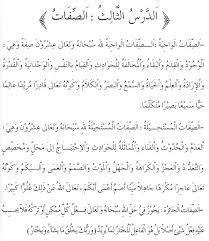 الدَّرْسُ الثَّالِثُ : الصِّفَاتُ
-الصِّفَاتُ الْوَاجِبَةُ: الصِّفَاتُ الْوَاجِبَةُ لله سُبْحَانَهُ وَتَعَالَى عِشْرُونَ صِفَةً وَهِيَ:
الْوُجُودُ وَالْقِدَمُ وَالْبَقَاءُ وَالْمُخَالَفَةُ لِلْحَوَادِثِ وَالْقِيَامُ بِالنَّفْسِ وَالْوَحْدَانِيَّةُ وَالْقُدْرَةُ
وَالْإِرَادَةُ وَالْعِلْمُ وَالْحَيَاةُ وَالسَّمْعُ وَالْبَصَرُ وَالْكَلَامُ وَكَوْنُهُ تَعَالَى قَادِرًا مُرِيْدًا عَالِمًا
حَيًّا سَمِيعًا بَصِيرًا مُتَكَلِّمًا.
-الصِّفَاتُ الْمُسْتَحِيلَةُ: الصِّفَاتُ الْمُسْتَحِيلَةُ لله سُبْحَانَهُ وَتَعَالَى عِشْرُونَ صِفَةً وَهِيَ:
الْعَدَمُ وَالْحُدُوثُ وَالْفَنَاءُ وَالْمُمَاثَلَةُ لِلْحَوَادِثِ وَالْاِحْتِيَاجُ إِلَى مَحَلٍّ وَمُخَصِّصٍ
وَالتَّعَدُّدُ وَالْعَجْزُ وَالْكَرَاهَةُ وَالْجَهْلُ وَالْمَوْتُ وَالصَّمَمُ وَالْعَمَى وَالْبَكَمُ وَكَوْنُهُ
عَاجِزًا مُكْرَهًا جَاهِلًا مَيِّتًا أَصَمَّ أَعْمَى أَبْكَمَ تَعَالَى اللهُ عَنْ ذَلِكَ عُلُوًّا كَبِيرًا.
-الصِّفَاتُ الْجَائِزَةُ: يَجُوزُ فِي حَقِّ الله سُبْحَانَهُ وَتَعَالَى فِعْلُ كُلِّ مُمْكِنٍ أَوْ تَرْكُهُ فَلَا يَجِبُ
عَلَيْهِ شَيْءٌ أَصْلًا بَلْ هُوَ الْفَاعِلُ لِمَا يُرِيدُ وَرَبُّكَ يَخْلُقُ مَا يَشَاءُ وَيَخْتَارُ